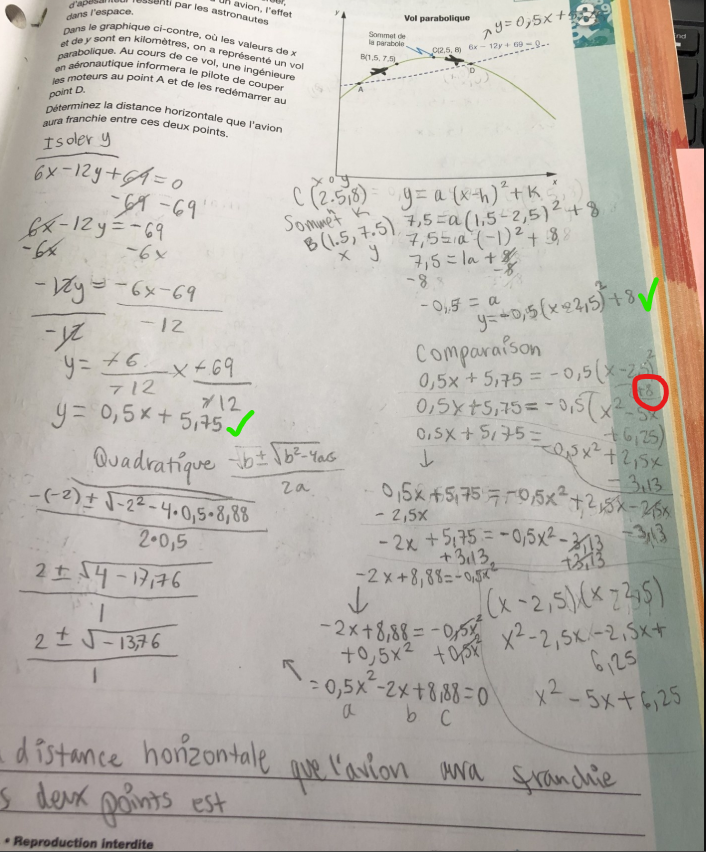 un avion, l'effet
ressenti par les astronautes
dans l'espace.
Dans le graphique ci-contre, où les valeurs de x
et de y sont en kilomètres, on a représenté un vol
parabolique. Au cours de ce vol, une ingénieure
en aéronautique informera le pilote de couper
les moteurs au point A et de les redémarrer au
point D.
Déterminez la distance horizontale que l'avion
aura franchie entre ces deux points.
y
Vol parabolique
y = 0,5x +
Sommet de
la parabole
C(2,5, 8)
6x − 12y + 69 = 0
B(1,5, 7,5)
A
D
0
x
Isoler y
6x - 12y + 69 = 0
-69 -69
6x - 12y = -69
-6x -6x
-12y = -6x - 69
-12 -12
y = +6 x + 69
+12 +12
y = 0,5x + 5,75
x y
C (2.5,8)
Sommet h k
B (1.5, 7.5)
x y
y = a (x-h)² + k
7,5 = a (1,5 - 2,5)² + 8
7,5 = a (-1)² + 8
7,5 = 1a + 8
-8 -8
-0,5 = a
y = -0,5 (x - 2,5)² + 8
Comparaison
0,5x + 5,75 = -0,5 (x - 2,5)²
+8
0,5x + 5,75 = -0,5 (x² - 5x
+ 6,25)
0,5x + 5,75 = -0,5x² + 2,5x
- 3,13
↓
0,5x + 5,75 = -0,5x² + 2,5x - 2,5x
- 2,5x - 3,13
-2x + 5,75 = -0,5x² - 3,13
+3,13 +3,13
-2x + 8,88 = -0,5x²
↓
-2x + 8,88 = -0,5x²
+0,5x² +0,5x²
= 0,5x² - 2x + 8,88 = 0
a b c
(x - 2,5) (x - 2,5)
x² - 2,5x - 2,5x +
6,25
x² - 5x + 6,25
Quadratique -b ± √b² - 4ac
2a
-(-2) ± √-2² - 4 • 0,5 • 8,88
2 • 0,5
2 ± √4 - 17,76
1
2 ± √-13,76
1
distance horizontale que l'avion aura franchie
deux points est
• Reproduction interdite